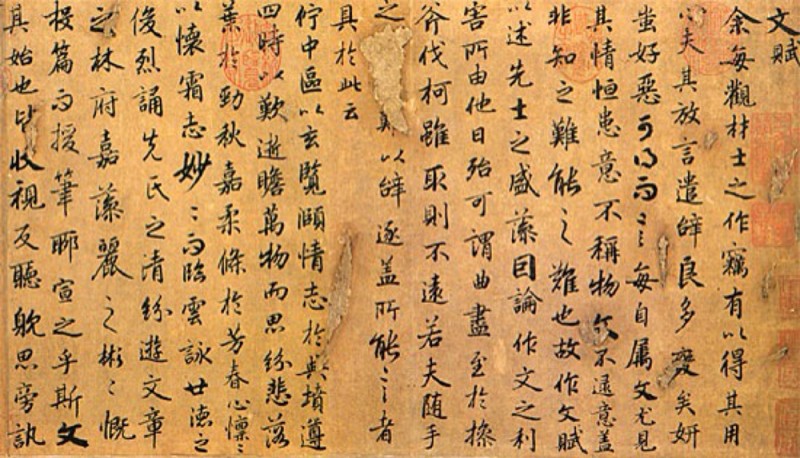 文賦
余每觀材士之作竊有以得其用
心夫其放言遣辞良多變矣妍
蚩好惡可得而言每自属文尤見
其情恒患意不稱物文不逮意盖
非知之難能之難也故作文賦
以述先士之盛藻因論作文之利
害所由他日殆可謂曲盡至於操
斧伐柯雖取則不遠若夫随手
之難以辞逐盖所能言者
具於此云
佇中區以玄覽頤情志於典墳遵
四時以歎逝瞻萬物而思紛悲落
葉於勁秋嘉柔條於芳春心懍〻
以懷霜志妙〻而臨雲詠世德之
俊烈誦先氏之清紛遊文章
之林府嘉藻麗之彬〻慨
投篇而援筆聊宣之乎斯文
其始也皆収視反聽躭思旁訊